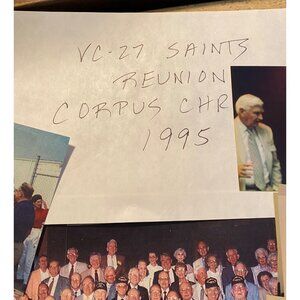 VC-27 SAINTS
REUNION
CORPUS CHR
1995